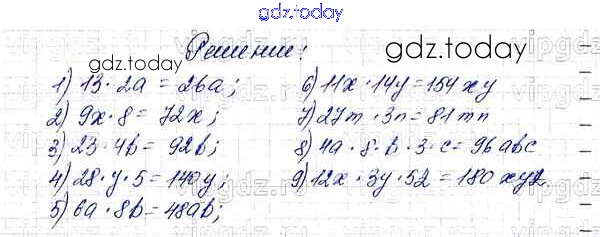 gdz.today
Решение:
gdz.today
gdz.today
1) 13 · 2a = 26a;
2) 9x · 8 = 72x;
3) 23 · 4b = 92b;
4) 28 · y · 5 = 140y;
5) 6a · 8b = 48ab;
6) 11x · 14y = 154xy
7) 27m · 3n = 81mn
8) 4a · 8 · b · 3 · c = 96abc
9) 12x · 3y · 5z = 180xyz